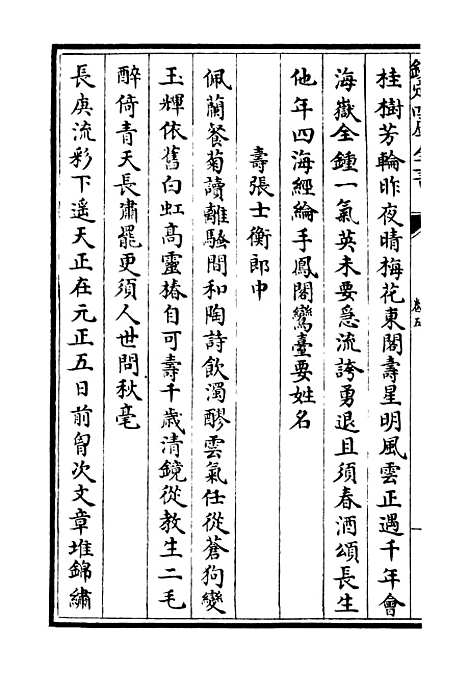 欽定四庫全書
卷五
桂樹芳輪昨夜晴梅花東閣壽星明風雲正遇千年會
海嶽全鍾一氣英未要急流誇勇退且須春酒頌長生
他年四海經綸手鳳閣鸞臺要姓名
壽張士衡郎中
佩蘭餐菊讀離騷間和陶詩飲濁醪雲氣任從蒼狗變
玉輝依舊白虹高靈椿自可壽千歳清鏡從教生二毛
醉倚青天長肅罷更須人世問秋毫
長庚流彩下遥天正在元正五日前胷次文章堆錦繡